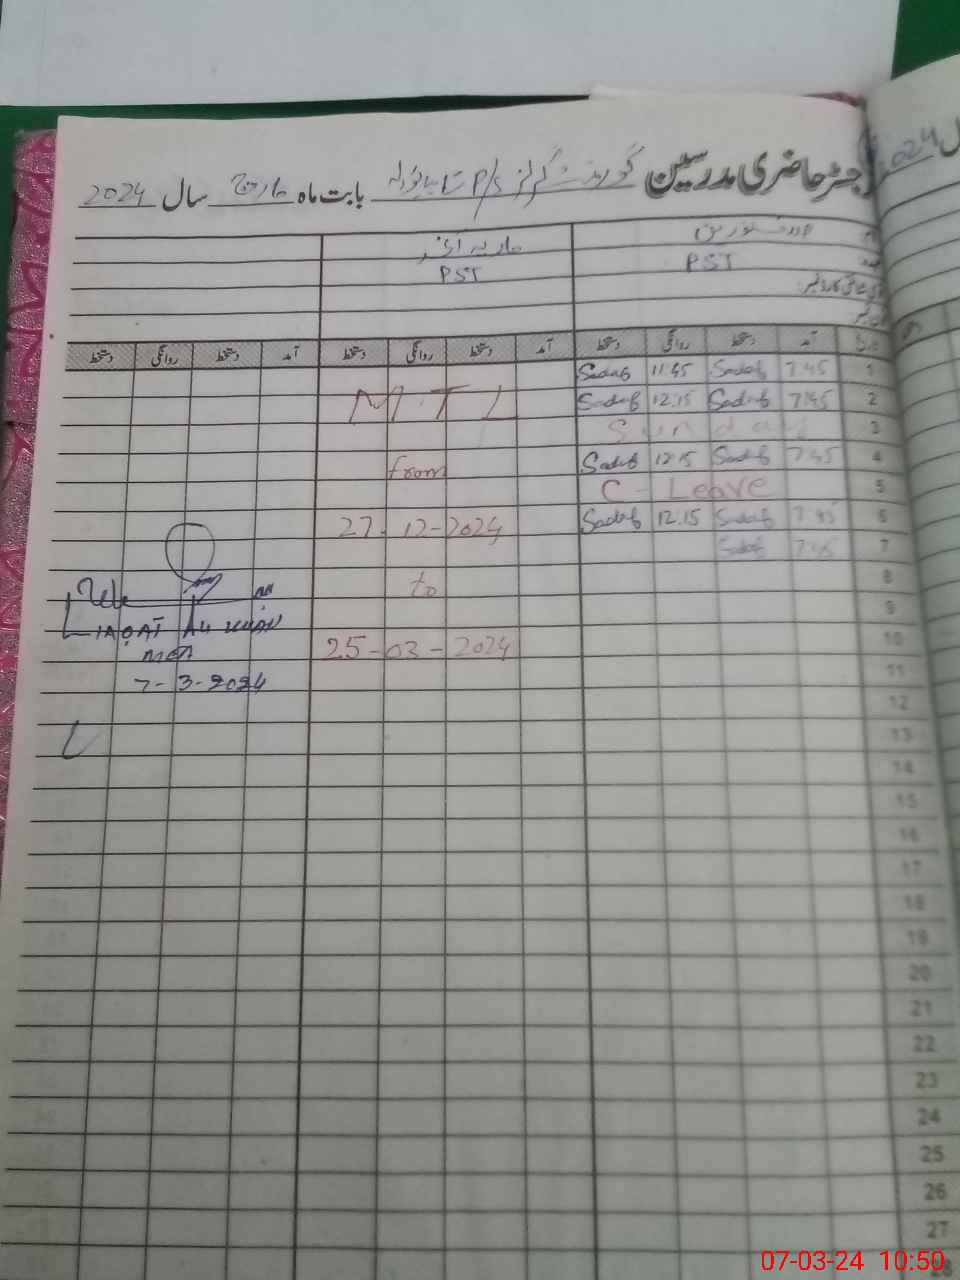 رجسٹر حاضری مدرسین گورنمنٹ گرلز P/S بابت ماہ مارچ سال 2024
2024
PST
PST
تاریخ آمد دستخط روانگی دستخط آمد دستخط روانگی دستخط آمد دستخط روانگی دستخط
1 7:45 Sadaf 11:45 Sadaf
2 7:45 Sadaf 12:15 Sadaf
3 Sunday
4 7:45 Sadaf 12:15 Sadaf
5 C - Leave
6 7:45 Sadaf 12:15 Sadaf
7 7:45 Sadaf
8
9
10
11
12
13
14
15
16
17
18
19
20
21
22
23
24
25
26
27
28
from
27-12-2024
to
25-03-2024
LIAQAT ALI KHAN
MEA
7-3-2024
07-03-24 10:50